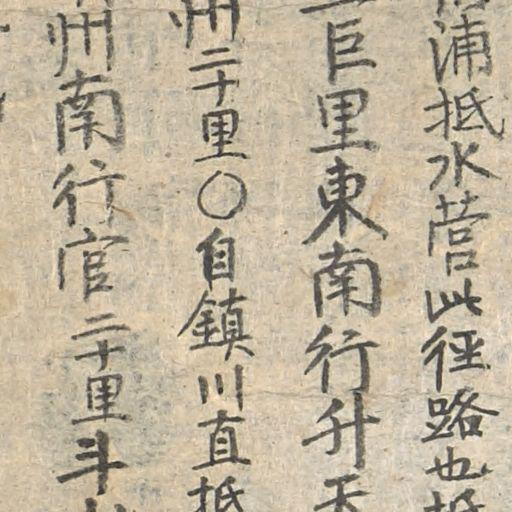 浦抵水营此徑路也抵
巨里東南行升天
州二十里○自鎭川直抵
州南行官二十里斗